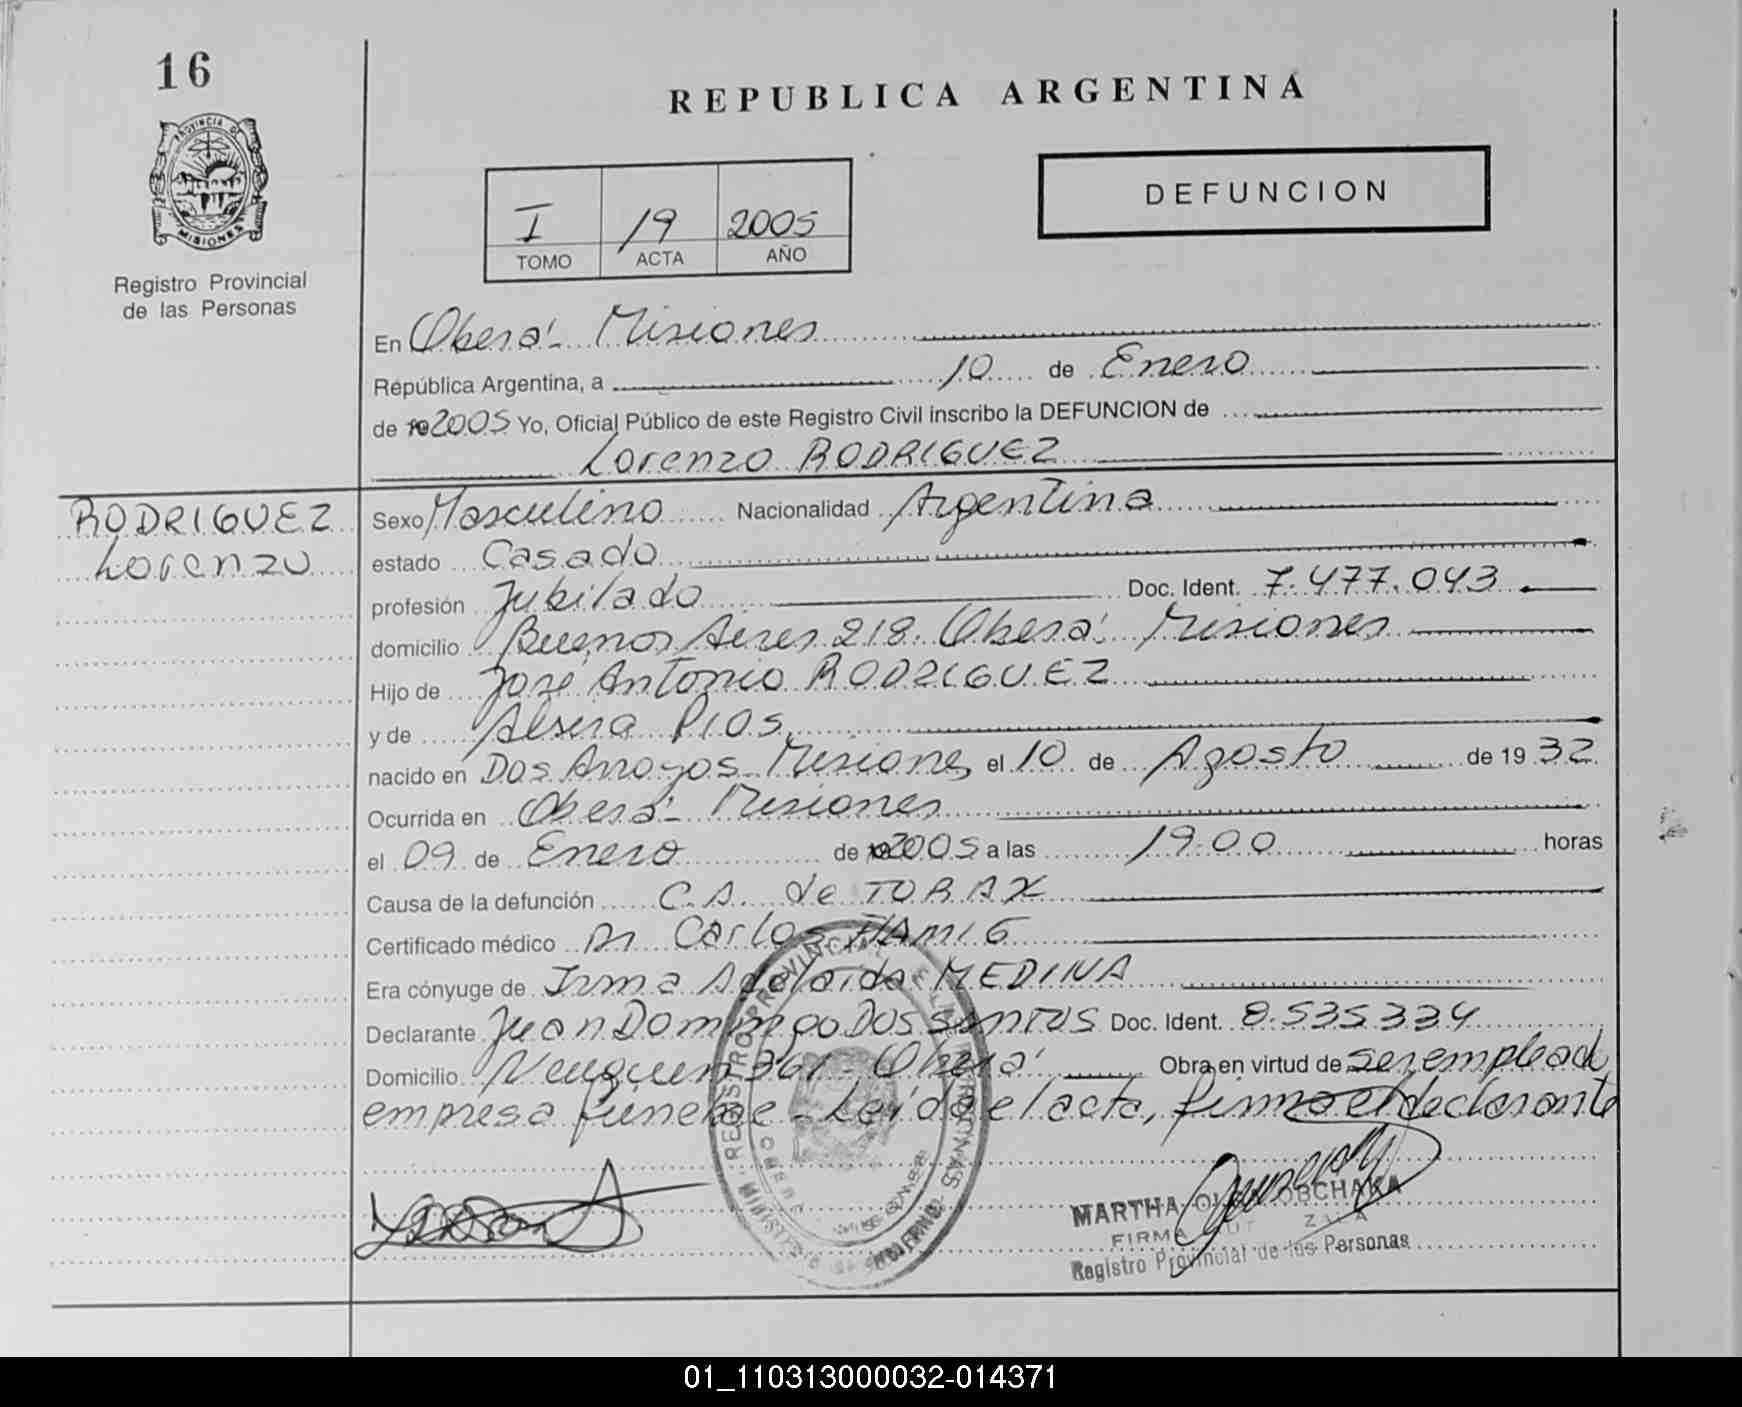 16
REPUBLICA ARGENTINA
PROVINCIA DE
MISIONES
Registro Provincial
de las Personas
I 19 2005
TOMO ACTA AÑO
DEFUNCION
En Oberá - Misiones
República Argentina, a 10 de Enero
de 2005 Yo, Oficial Público de este Registro Civil inscribo la DEFUNCION de
Lorenzo RODRIGUEZ
RODRIGUEZ
Lorenzo
Sexo Masculino Nacionalidad Argentina
estado Casado
profesión Jubilado Doc. Ident. 7.477.043
domicilio Buenos Aires 218. Oberá. Misiones
Hijo de José Antonio RODRIGUEZ
y de PIOS
nacido en Dos Arroyos - Misiones el 10 de Agosto de 1932
Ocurrida en Oberá - Misiones
el 09 de Enero de 2005 a las 19.00 horas
Causa de la defunción C.A. de TORAX
Certificado médico Dr Carlos
Era cónyuge de Irma Adelaida MEDINA
Declarante Juan Domingo Dos Santos Doc. Ident. 8.535.334
Domicilio Neuquen 361 - Oberá Obra en virtud de ser emplead
empresa funebre - Leída el acta, firma el declarante
REGISTRO PROVINCIAL DE LAS PERSONAS
MARTHA
FIRMA
Registro Provincial de las Personas
01_110313000032-014371